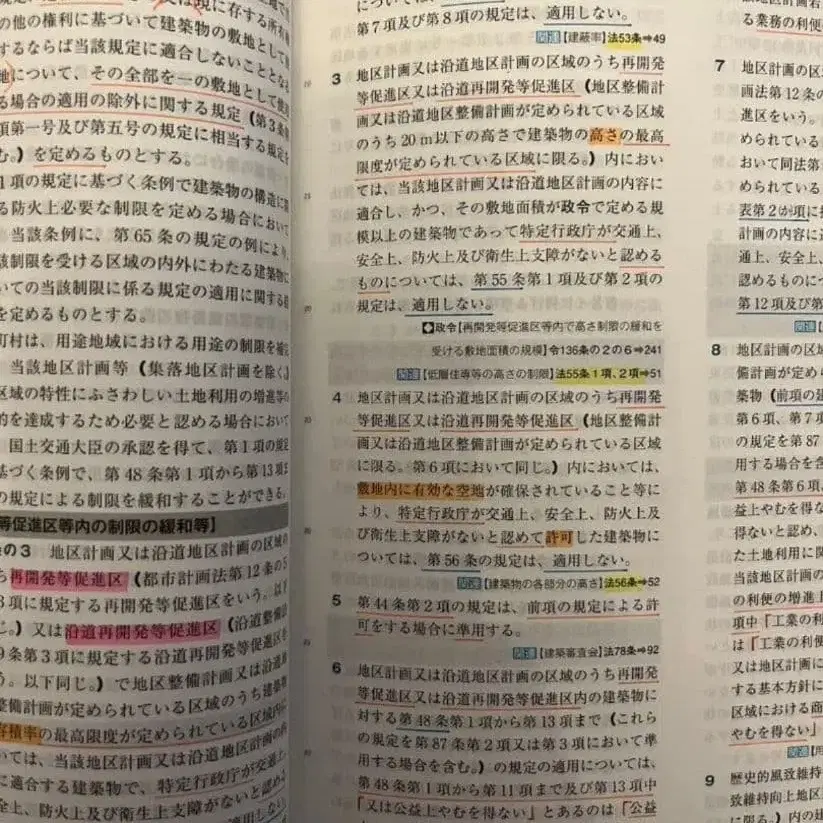 の他の権利に基づいて建築物の敷地として
するならば当該規定に適合しないこととなる
地について、その全部を一の敷地として使用
る場合の適用の除外に関する規定(第3条第
項第一号及び第五号の規定に相当する規定を
む。)を定めるものとする。
1項の規定に基づく条例で建築物の構造に関
る防火上必要な制限を定める場合において
当該条例に、第65条の規定の例により、
該制限を受ける区域の内外にわたる建築物に
いての当該制限に係る規定の適用に関する
を定めるものとする。
町村は、用途地域における用途の制限を補
当該地区計画等(集落地区計画を除く。)
区域の特性にふさわしい土地利用の増進等の
的を達成するため必要と認める場合において
国土交通大臣の承認を得て、第1項の規定
基づく条例で、第48条第1項から第13項ま
の規定による制限を緩和することができる。
等促進区等内の制限の緩和等】
の3 地区計画又は沿道地区計画の区域の
ち再開発等促進区(都市計画法第12条の5
3項に規定する再開発等促進区をいう。以下
じ。)又は沿道再開発等促進区(沿道整備
9条第3項に規定する沿道再開発等促進区を
う。以下同じ。)で地区整備計画又は沿道地
整備計画が定められている区域のうち建築物
容積率の最高限度が定められている区域内に
いては、当該地区計画又は沿道地区計画の内
に適合する建築物で、特定行政庁が交通上、
全上、防火上及び衛生上支障がないと認める
第7項及び第8項の規定は、適用しない。
関連【建蔽率】法53条⇒49
3 地区計画又は沿道地区計画の区域のうち再開発
等促進区又は沿道再開発等促進区(地区整備計
画又は沿道地区整備計画が定められている区域
のうち20m以下の高さで建築物の高さの最高
限度が定められている区域に限る。)内におい
ては、当該地区計画又は沿道地区計画の内容に
適合し、かつ、その敷地面積が政令で定める規
模以上の建築物であって特定行政庁が交通上、
安全上、防火上及び衛生上支障がないと認める
ものについては、第55条第1項及び第2項の
規定は、適用しない。
政令【再開発等促進区等内で高さ制限の緩和を
受ける敷地面積の規模】令136条の2の6⇒241
関連【低層住専等の高さの制限】法55条1項、2項⇒51
4 地区計画又は沿道地区計画の区域のうち再開発
等促進区又は沿道再開発等促進区(地区整備計
画又は沿道地区整備計画が定められている区域
に限る。第6項において同じ。)内においては、
敷地内に有効な空地が確保されていること等に
より、特定行政庁が交通上、安全上、防火上及
び衛生上支障がないと認めて許可した建築物に
ついては、第56条の規定は、適用しない。
関連【建築物の各部分の高さ】法56条⇒52
5 第44条第2項の規定は、前項の規定による許
可をする場合に準用する。
関連【建築審査会】法78条⇒92
6 地区計画又は沿道地区計画の区域のうち再開発
等促進区又は沿道再開発等促進区内の建築物に
対する第48条第1項から第13項まで(これら
の規定を第87条第2項又は第3項において準
用する場合を含む。)の規定の適用については、
第48条第1項から第11項まで及び第13項中
「又は公益上やむを得ない」とあるのは「公益
る業務の利便
7 地区計画の区
画法第12条の
進区をいう。
められている
おいて同法第
められている
表第2(か)項に
計画の内容に
通上、安全上、
認めるものにつ
第12項及び第
関連
8 地区計画の区域
備計画が定めら
築物(前項の建
第6項、第7項
の規定を第87
用する場合を含
第48条第6項、
益上やむを得な
得ないと認め、
た土地利用に関
当該地区計画の
の利便の増進上
項中「工業の利
は「工業の利便
又は地区計画に
する基本方針に
区域における商
やむを得ない」
関連【用
9 歴史的風致維持
致維持向上地区
に限る。)内の建